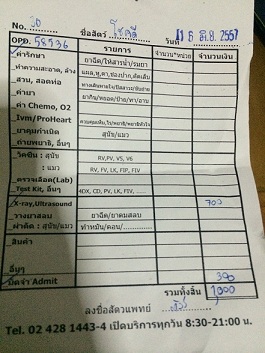 No. 30 ชื่อสัตว์ โชคดี
OPD. 58536 รายการ วันที่ 16 มิ.ย. 2557
จำนวน*หน่วย จำนวนเงิน
ค่ารักษา ยาฉีด/ให้สารน้ำ/รมยา
ทำความสะอาด, ล้าง แผล,หู,ตา,ช่องปาก,ตัดเล็บ
สวน, สอดท่อ
ค่ายา ยากิน/หยอด/ป้าย/ทา/อาบ
ค่า Chemo, O2
Ivm/ProHeart
ยาคุมกำเนิด สุนัข/แมว
ถ่ายพยาธิ, อื่นๆ
วัคซีน : สุนัข RV,PV, V5, V6
: แมว RV, FV, LK, FIP, FIV
ตรวจเลือด(Lab)
Test Kit, อื่นๆ 4DX, CD, PV, LK, FIV, ......
X-ray,Ultrasound 700
วางยาสลบ ยาฉีด/ยาดมสลบ
ผ่าตัด : สุนัข/แมว ทำหมัน/คลอด/.........
สินค้า
อื่นๆ 300
มัดจำ Admit รวมทั้งสิ้น 1,000
ลงชื่อสัตวแพทย์
Tel. 02 428 1443-4 เปิดบริการทุกวัน 8:30-21:00 น.